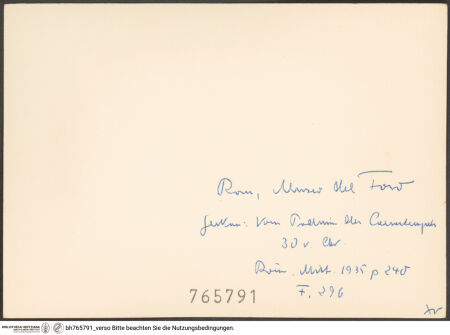 Rom, Museo del Foro
vom Podium des Caesartempels
30 v. Chr.
Röm. Mitt. 1935 p 240
F. 296
765791
BIBLIOTHECA HERTZIANA bh765791_verso Bitte beachten Sie die Nutzungsbedingungen.